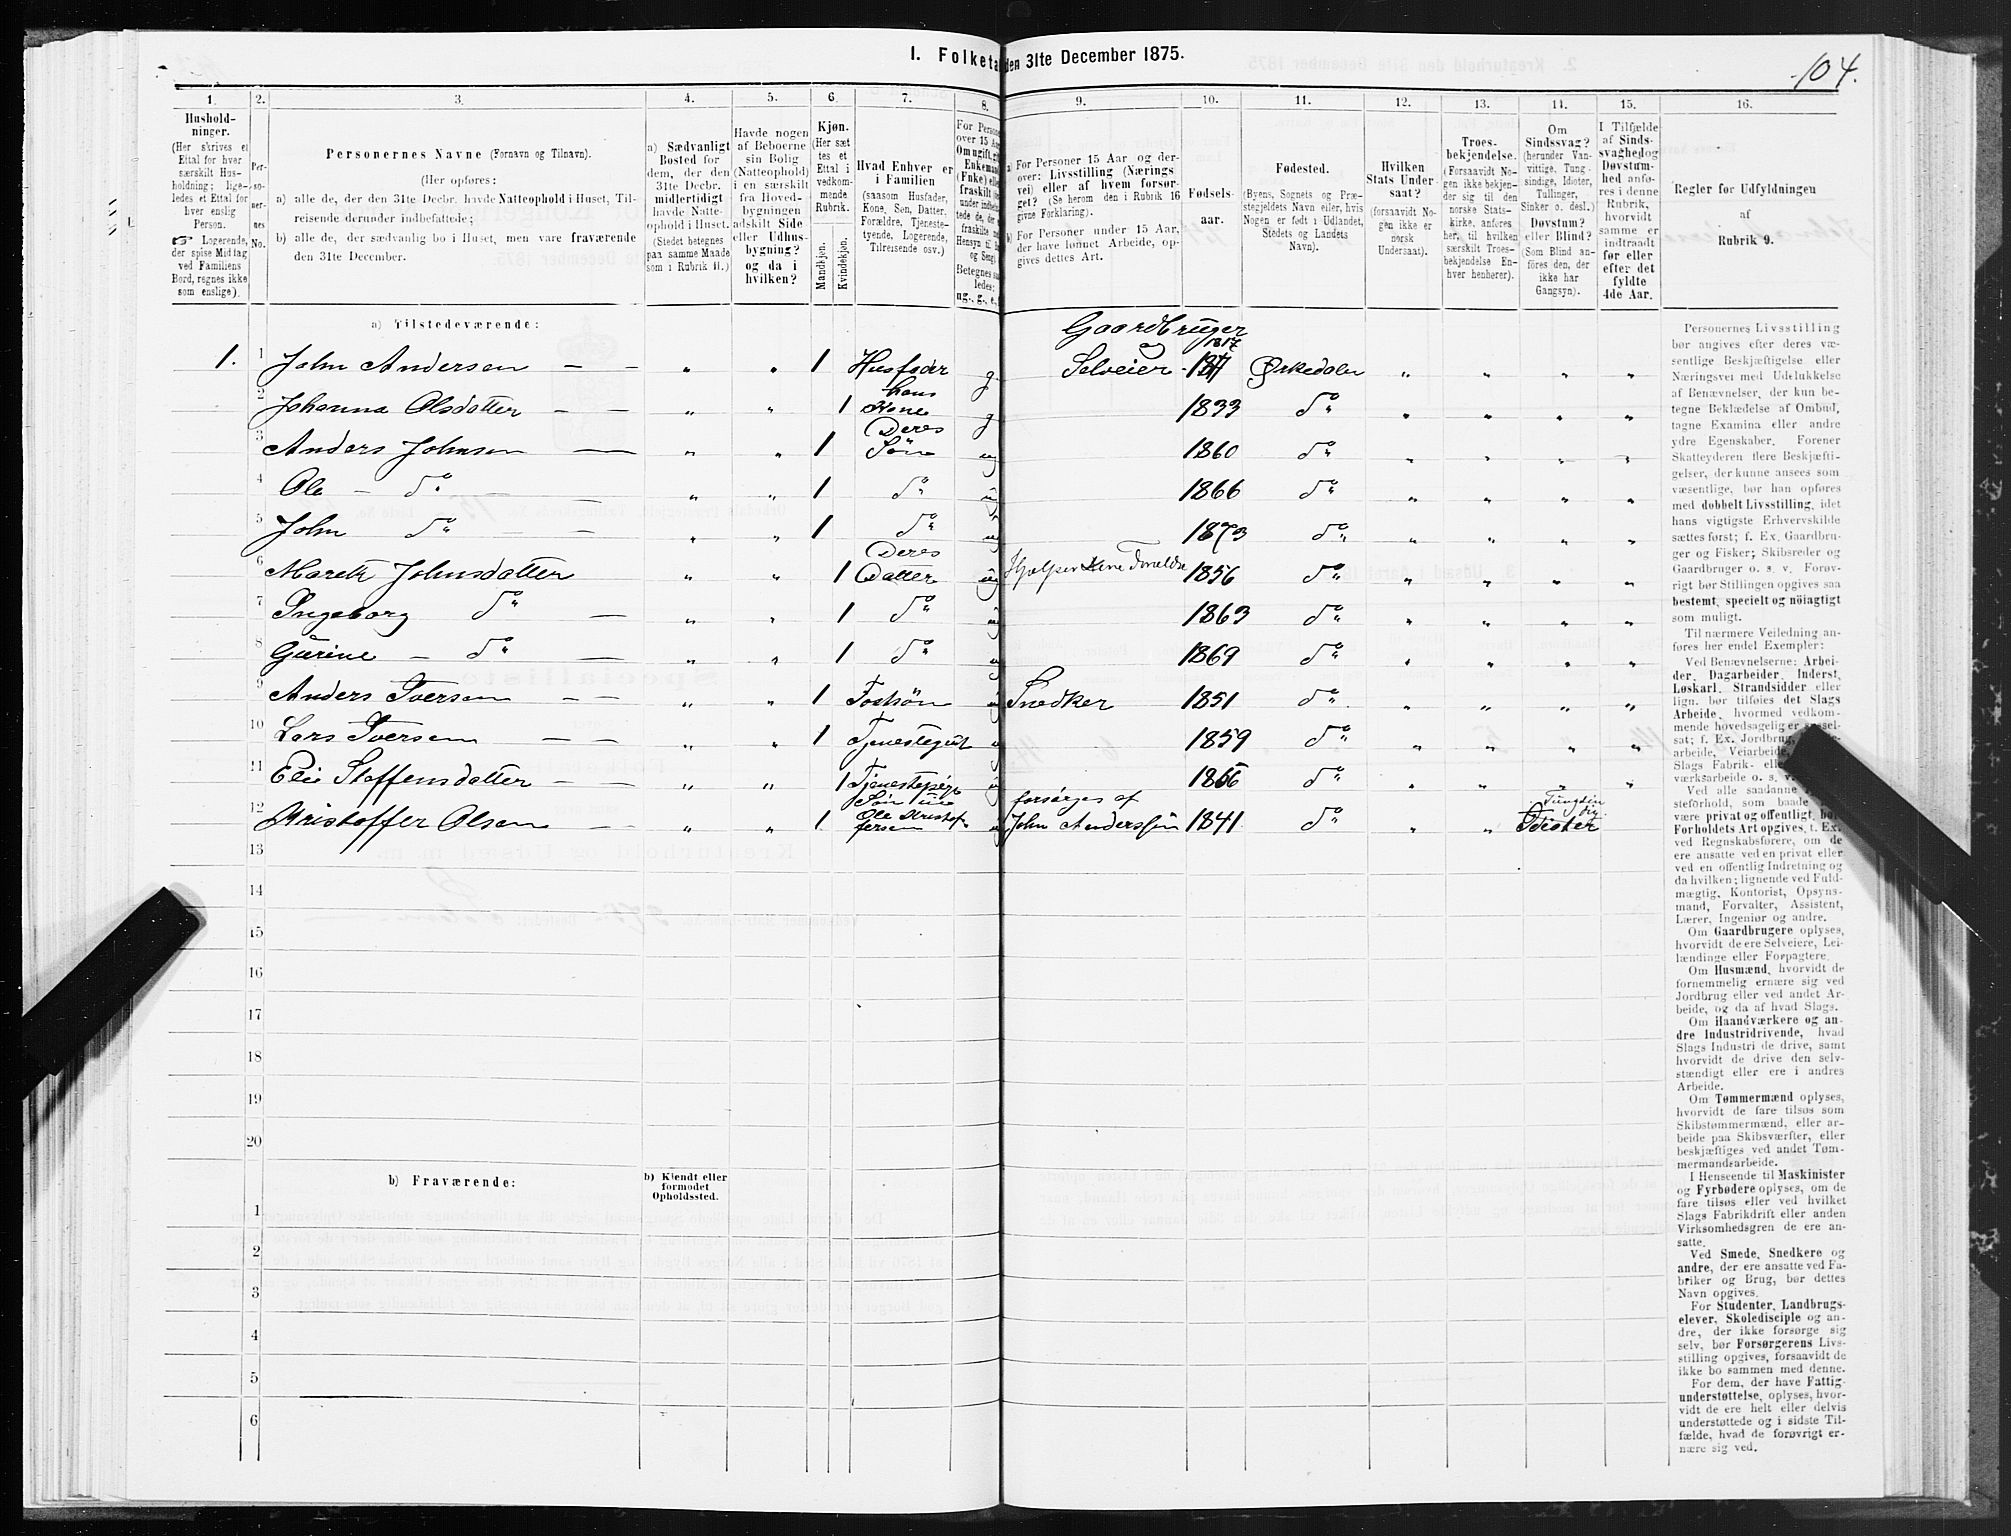 104.
I. Folketa den 31te December 1875.
1. 2. 3. 4. 5. 6. 7. 8. 9. 10. 11. 12. 13. 14. 15. 16.
Hushold-
ninger.
(Her skrives et
Ettal for hver
særskilt Hus-
holdning; lige-
ledes et Ettal for
hver enslig
Person.
☞ Logerende,
der spise Middag
ved Familiens
Bord, regnes ikke
som enslige).
Per-
so-
ner-
nes
No.
Personernes Navne (Fornavn og Tilnavn).
(Her opføres:
a) alle de, der den 31te Decbr. havde Natteophold i Huset, Til-
reisende derunder indbefattede;
b) alle de, der sædvanlig bo i Huset, men vare fraværende
den 31te December.
a) Sædvanligt
Bosted for
dem, der den
31te Decbr.
midlertidigt
havde Natte-
ophold i Huset.
(Stedet betegnes
paa samme Maade
som i Rubrik 11.)
Havde nogen
af Beboerne
sin Bolig
(Natteophold)
i en særskilt
fra Hoved-
bygningen
adskilt Side
eller Udhus-
bygning?
og da i
hvilken?
Kjøn.
(Her sæt
tes et
Ettal i
vedkom-
mende
Rubrik.
Mandkjøn.
Kvindekjøn.
Hvad Enhver er
i Familien
(saasom Husfader,
Kone, Søn, Datter,
Forældre, Tjeneste-
tyende, Logerende,
Tilreisende osv.)
For Persone
over 15 Aa
Om ugift, g
Enkeman
(Enke) elle
fraskilt
under indbefat-
tede de, der
fraskilte
Hensyn til B
og Seng).
Betegnes sa
ledes:
ug., g., e.,
a) For Personer 15 Aar og der-
over: Livsstilling (Nærings
vei) eller af hvem forsør-
get? (Se herom den i Rubrik 16
givne Forklaring).
b) For Personer under 15 Aar,
der have lønnet Arbeide, op-
gives dettes Art.
Fødsels-
aar.
Fødested.
(Byens, Sognets og Præ-
stegjeldets Navn eller, hvis
Nogen er født i Udlandet,
Stedets og Landets
Navn).
Hvilken
Stats Under
saat?
(forsaavidt No-
gen ikke er
norsk
Undersaat).
Troes-
bekjendelse.
(Forsaavidt No-
gen ikke bekjen-
der sig til den
norske Stats-
kirke, anføres
her, til hvilken
særskilt Troes-
bekjendelse En-
hver henhører).
Om
Sindssvag?
(herunder Van-
vittige, Tung-
sindige, Idioter,
Tullinger,
Sinker o. desl.)
Døvstum?
eller Blind?
(Som Blind an-
føres den, der
ikke har
Gangsyn).
I Tilfælde
af Sinds-
svaghed og
Døvstum-
hed anfø-
res i denne
Rubrik,
hvorvidt
samme er
indtraadt
før eller
efter det
fyldte
4de Aar.
Regler for Udfyldningen
af
Rubrik 9.
a) Tilstedeværende:
Gaardbruger
og 1817
1. 1 John Andersen — — „ „ 1 Husfader g. Selveier Ørkedalen „ „ „ „
hans
2 Johanna Olsdatter — — „ „ 1 Kone g 1833 do „ „ „ „
Deres
3 Anders Johnsen — „ „ 1 Søn ug 1860 do „ „ „ „
4 Ole — do — „ „ 1 do ug 1866 do „ „ „ „
5 John do — „ „ 1 do ug 1873 do „ „ „ „
Deres
6 Marett Johnsdatter „ „ 1 Datter ug Hjælper sine Forældre 1856 do „ „ „ „
7 Ingeborg do — „ „ 1 do ug 1863 do „ „ „ „
8 Gurine — do — „ „ 1 do ug 1869 do „ „ „ „
9 Anders Iversen — — „ „ 1 Fostsøn ug Snedker 1851 do „ „ „ „
10 Lars Iversen — — „ „ 1 Tjenestegut ug 1859 do „ „ „ „
11 Eli Steffensdatter — — „ „ 1 Tjenestepige ug do „ „ „ „
Søn forsørges af Tungsin
12 Kristoffer Olsen — „ „ 1 Ole Kristof- ug John Anderssen 1841 do „ „ dig
fersen
13
14
15
16
17
18
19
20
b) Fraværende:
b) Kjendt eller
formodet
Opholdssted.
1
2
3
4
5
6
Personernes Livsstilling
bør angives efter deres væ-
sentlige Beskjæftigelse eller
Næringsvei med Udelukkelse
af Benævnelser, der kun be-
tegne Beklædelse af Ombud,
tagne Examina eller andre
ydre Egenskaber. Forener
Skatteyderen flere Beskjæfti-
gelser, der kunne ansees som
væsentlige, bør han opføres
med dobbelt Livsstilling, idet
hans vigtigste Erhvervskilde
sættes først; f. Ex. Gaardbru-
ger og Fisker; Skibsreder og
Gaardbruger o. s. v. Forøv-
rigt bør Stillingen opgives saa
bestemt, specielt og nöiagtigt
som muligt.
Til nærmere Veiledning an-
føres her endel Exempler:
Ved Benævnelserne: Arbei-
der, Dagarbeider, Inderst,
Løskarl, Strandsidder eller
lign. bør tilføies det Slags
Arbeide, hvormed vedkom-
mende hovedsagelig er syssel-
sat; f. Ex. Jordbrug,
arbeide, Veiarbeide,
Slags Fabrik- el
værksarbeide o. s. v.
Ved alle saadanne
steforhold, som baade
være privat og offentlig, bør
Forholdets Art opgives, t. Ex.
ved Regnskabsførere, om de
ere ansatte ved en privat eller
ved en offentlig Indretning og
da hvilken; lignende ved Fuld-
mægtig, Kontorist, Opsyns-
mand, Forvalter, Assistent,
Lærer, Ingeniør og andre.
Om Gaardbrugere oplyses,
hvorvidt de ere Selveiere, Lei-
lændinge eller Forpagtere.
Om Husmænd, hvorvidt de
fornemmelig ernære sig ved
Jordbrug eller ved andet Ar-
beide, og da af hvad Slags.
Om Haandværkere og an-
dre Industridrivende, hvad
Slags Industri de drive, samt
hvorvidt de drive den selv-
stændigt eller ere i andres
Arbeide.
Om Tømmermænd oplyses,
hvorvidt de fare tilsøs som
Skibstømmermænd, eller ar-
beide paa Skibsværfter, eller
beskjæftiges ved andet Tøm-
mermandsarbeide.
I Henseende til Maskinister
og Fyrbødere oplyses, om de
fare tilsøs eller ved hvilket
Slags Fabrikdrift eller anden
Virksomhedsgren de ere an-
satte.
Ved Smede, Snedkere og
andre, der ere ansatte ved Fa-
briker og Brug, bør dettes
Navn opgives.
For Studenter, Landbrugs-
elever, Skoledisciple og an-
dre, der ikke forsørge sig
selv, bør Forsørgerens Livs-
stilling opgives, forsaavidt de
ikke bo sammen med denne.
For dem, der have Fattig-
understøttelse, oplyses, hvor-
vidt de ere helt eller delvis
understøttede og i sidste Til-
fælde, hvad de forøvrigt er-
nære sig ved.